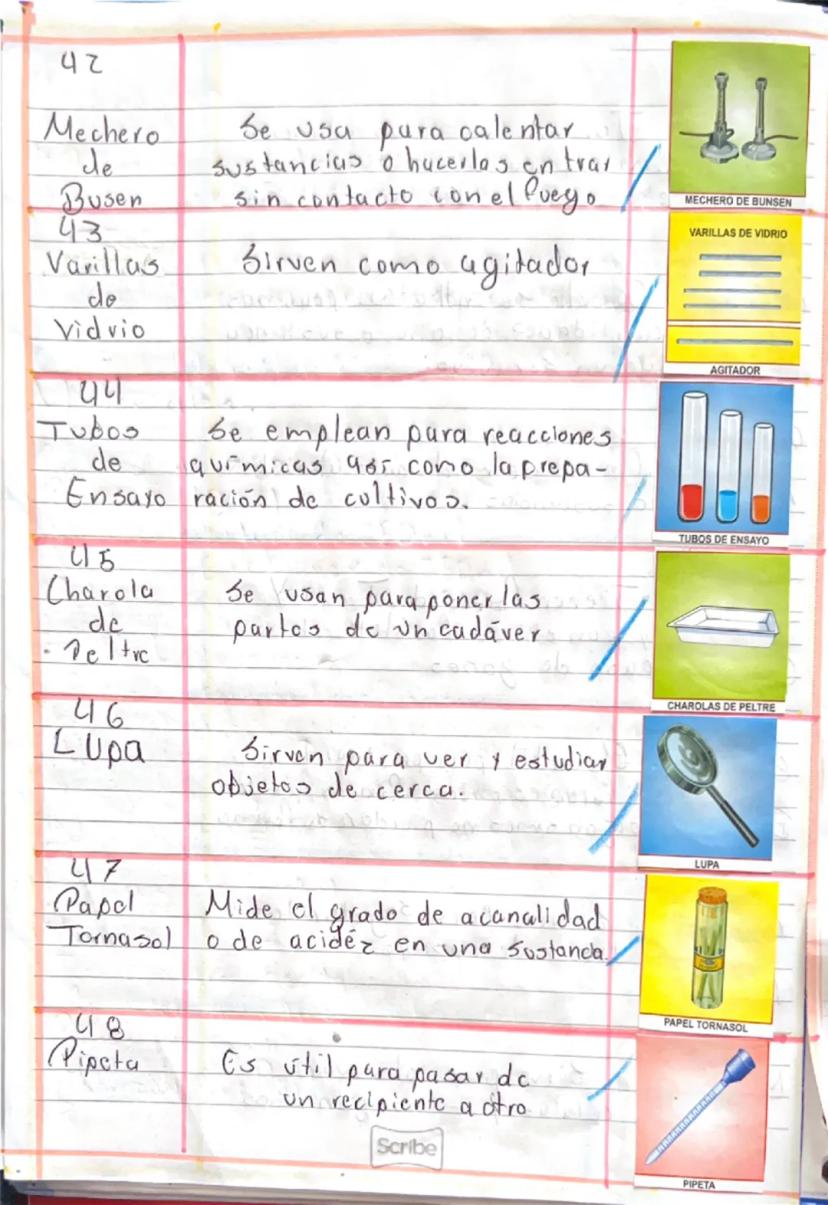 42
Mechero
de
Busen
Se usa para calentar
sustancias o hacerlas entrar
sin contacto con el fuego
MECHERO DE BUNSEN
43
Varillas
de
Vidrio
Sirven como agitador
VARILLAS DE VIDRIO
AGITADOR
44
Tubos
de
Ensayo
Se emplean para reacciones
químicas así como la prepa-
ración de cultivos.
TUBOS DE ENSAYO
45
Charola
de
Peltre
Se usan para poner las
partes de un cadáver
CHAROLAS DE PELTRE
46
Lupa
Sirven para ver y estudiar
objetos de cerca.
LUPA
47
Papel
Tornasol
Mide el grado de acanalidad
o de acidéz en una sustancia
PAPEL TORNASOL
48
Pipeta
Es útil para pasar de
un recipiente a otro
PIPETA
Scribe